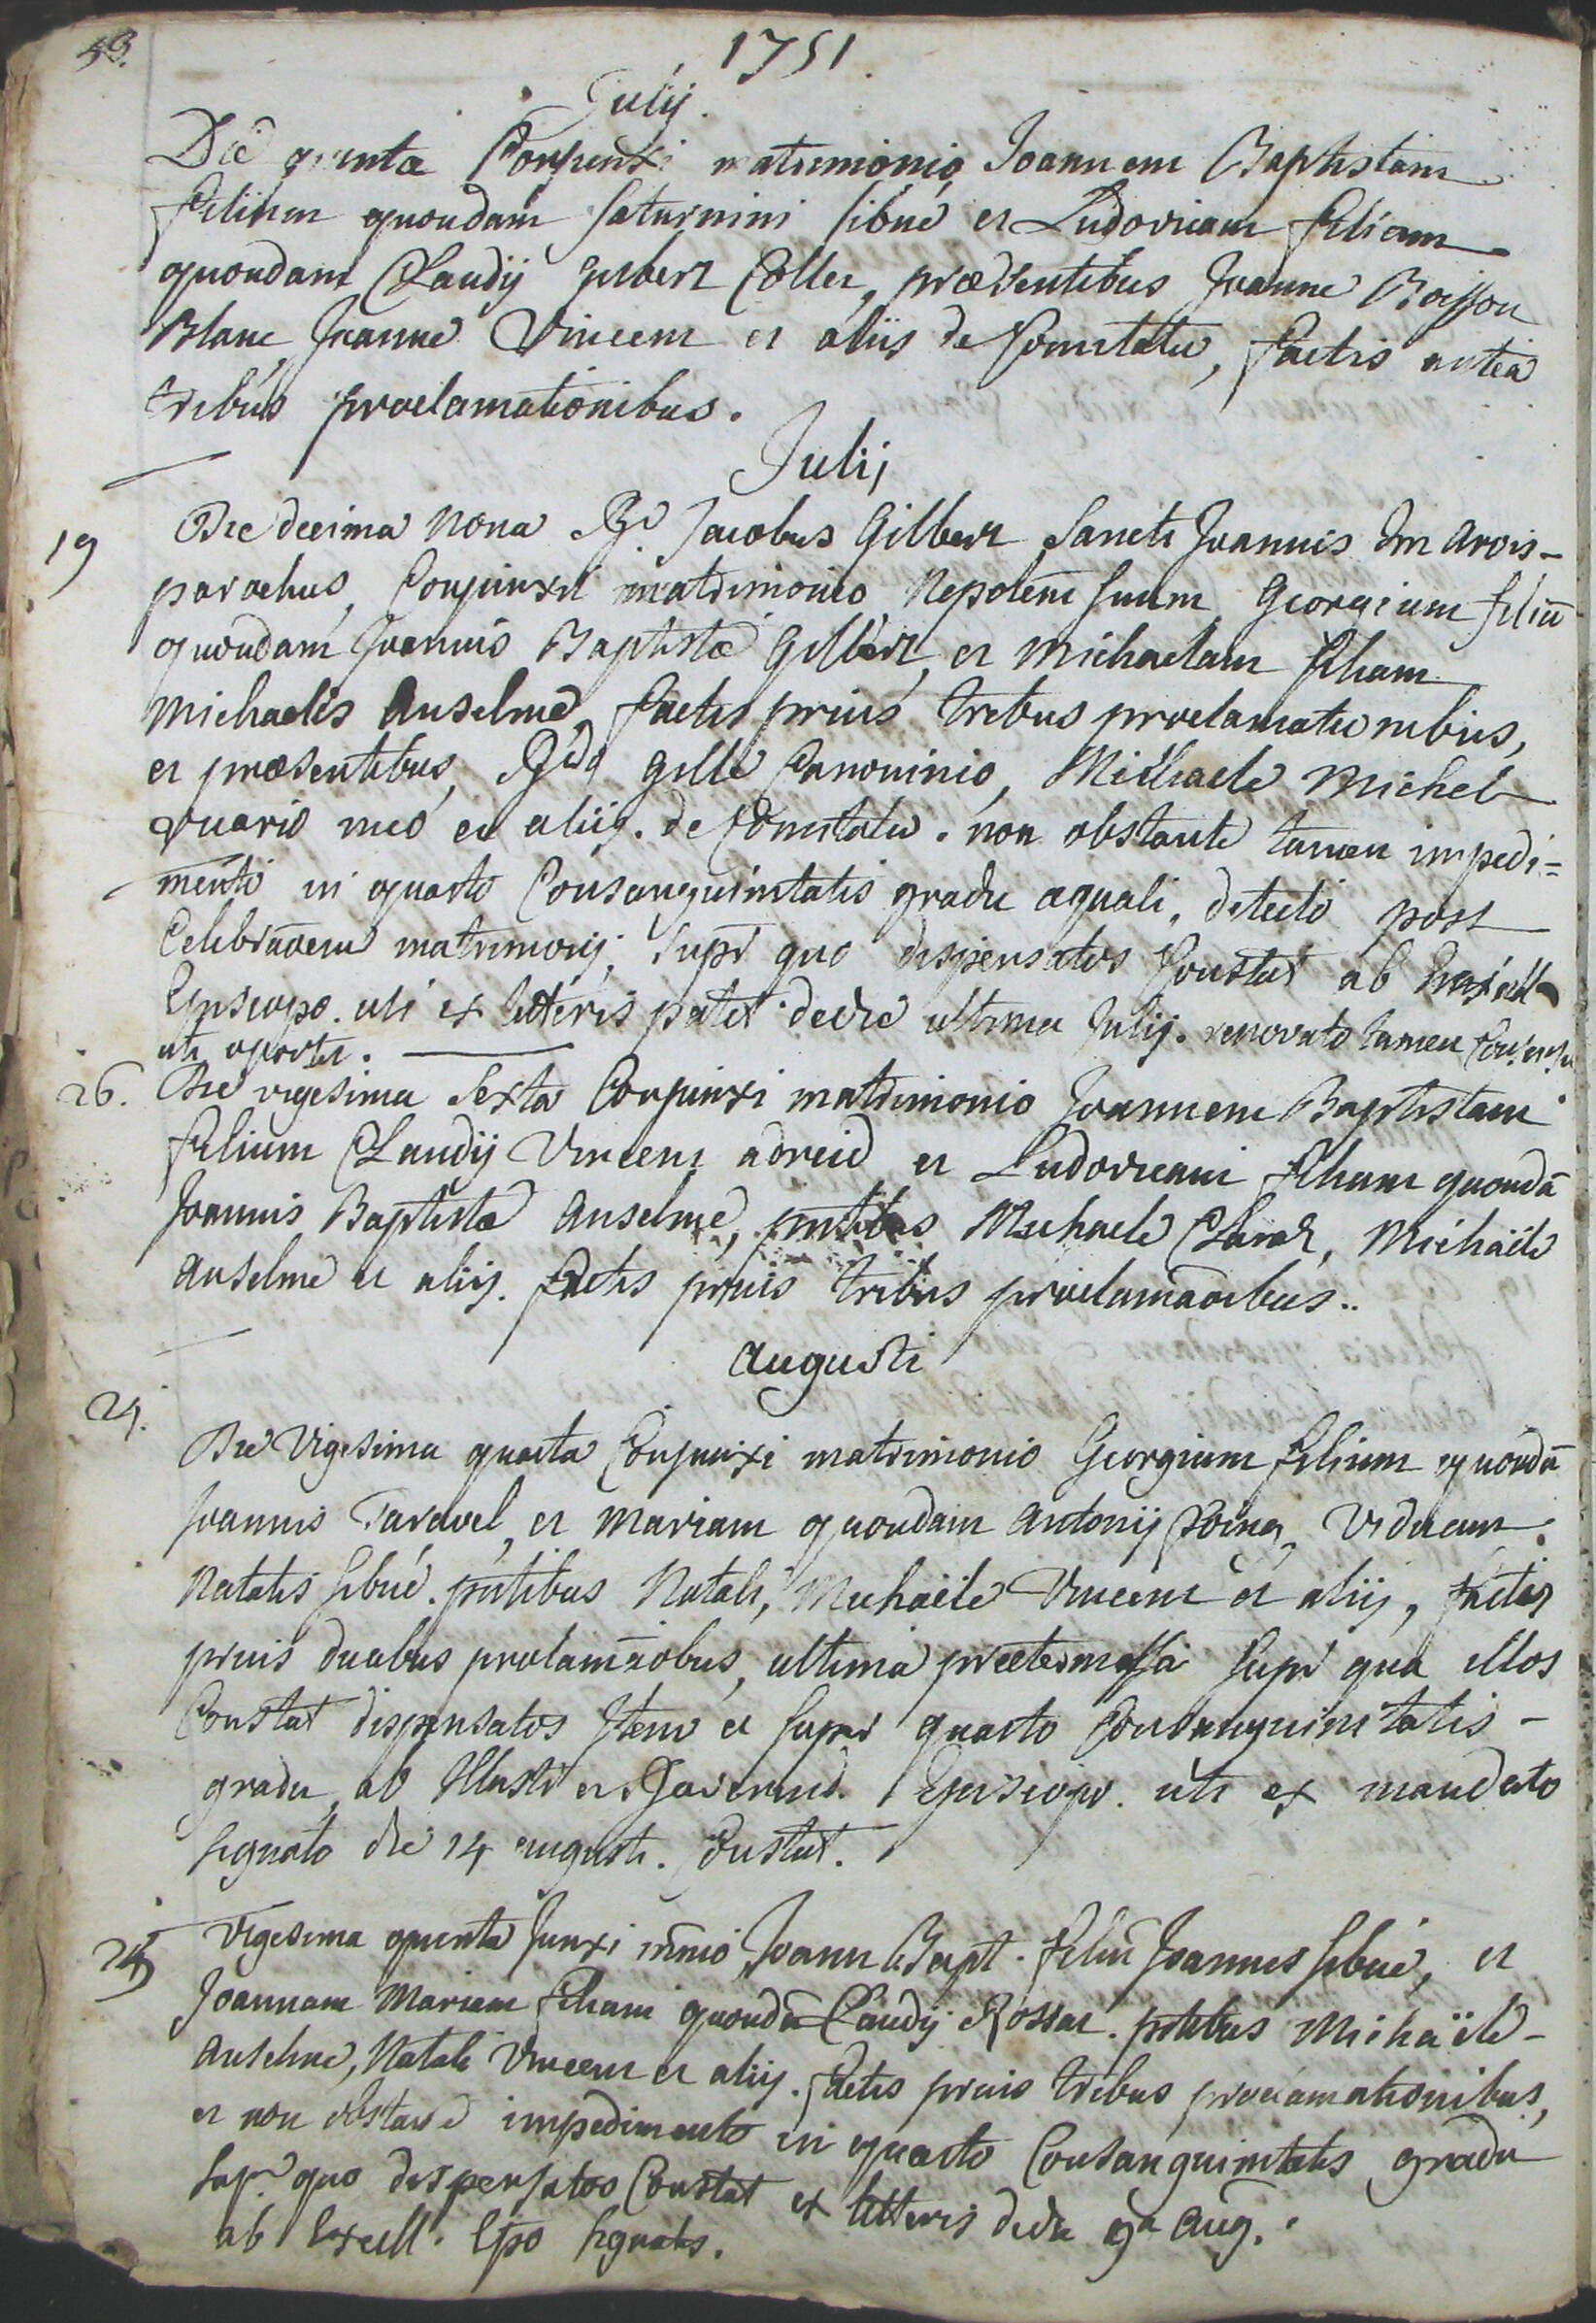 1751
Julij.
Die quinta Conjunxi matrimonio Joannem Baptistam
filium quondam Saturnini Sibué et Ludovicam filiam
quondam Claudij Gilbert Collet, præsentibus Joanne Boisson
Blanc, Joanne Vincent et aliis de Comitatu, factis antea
tribus proclamationibus.
Julij
19 Die decima nona Rd Jacobus Gilbert Sancti Joannis Im Arvis-
parochus, Conjunxit matrimonio Nepotem suum Georgium filiū
quondam Joannis Baptistæ Gilbert, et Michaelam filiam
Michaelis Anselme, factis prius tribus proclamationibus,
et præsentibus, Rdo Gille Canonico, Michaele Michel
vicario meo et aliis. de Comitatu. non obstante tamen impedi=
mento in quarto Consanguinitatis gradu æquali, detecto post
Celebraōem matrimonij, supr quo dispensatos Constat ab Excell
Episcopo. uti ex litteris patet de die ultima Julij. renovato tamen Consensu
uti oportet.
26. Die vigesima Sexta Conjunxi matrimonio Joannem Baptistam
filium Claudij Vincent et Ludovicam filiam quondā
Joannis Baptistæ Anselme, pntibus Michaele Claraz, Michaële
Anselme et aliis. factis prius tribus proclamaōibus..
Augusti
24.
Die Vigesima quarta Conjunxi matrimonio Georgium filium quondā
Joannis Taravel, et Mariam quondam Antonij viduam
Natalis Sibué. pntibus Natali, Michaële Vincent et aliis, factis
prius duabus prolamāobus, ultima prætermissa supr qua illos
Constat dispensatos Item et supr quarto Consanguinitatis -
gradu, ab Illustr et Reverend. Episcopo. uti ex mandato
signato die 14 augusti. Constat.
25 Vigesima quinta Junxi mnio Joann Bapt. filiū Joannis Sibué, et
Joannam Mariam filiam quondā Claudij Rossat. pntibus Michaële -
Anselme, Natali Vincent et aliis. factis prius tribus proclamationibus,
et non obstante impedimento in quarto Consanguinitatis gradu
supr quo dispensatos Constat ex litteris die 9a Aug.
ab Excell. Epo signatis.